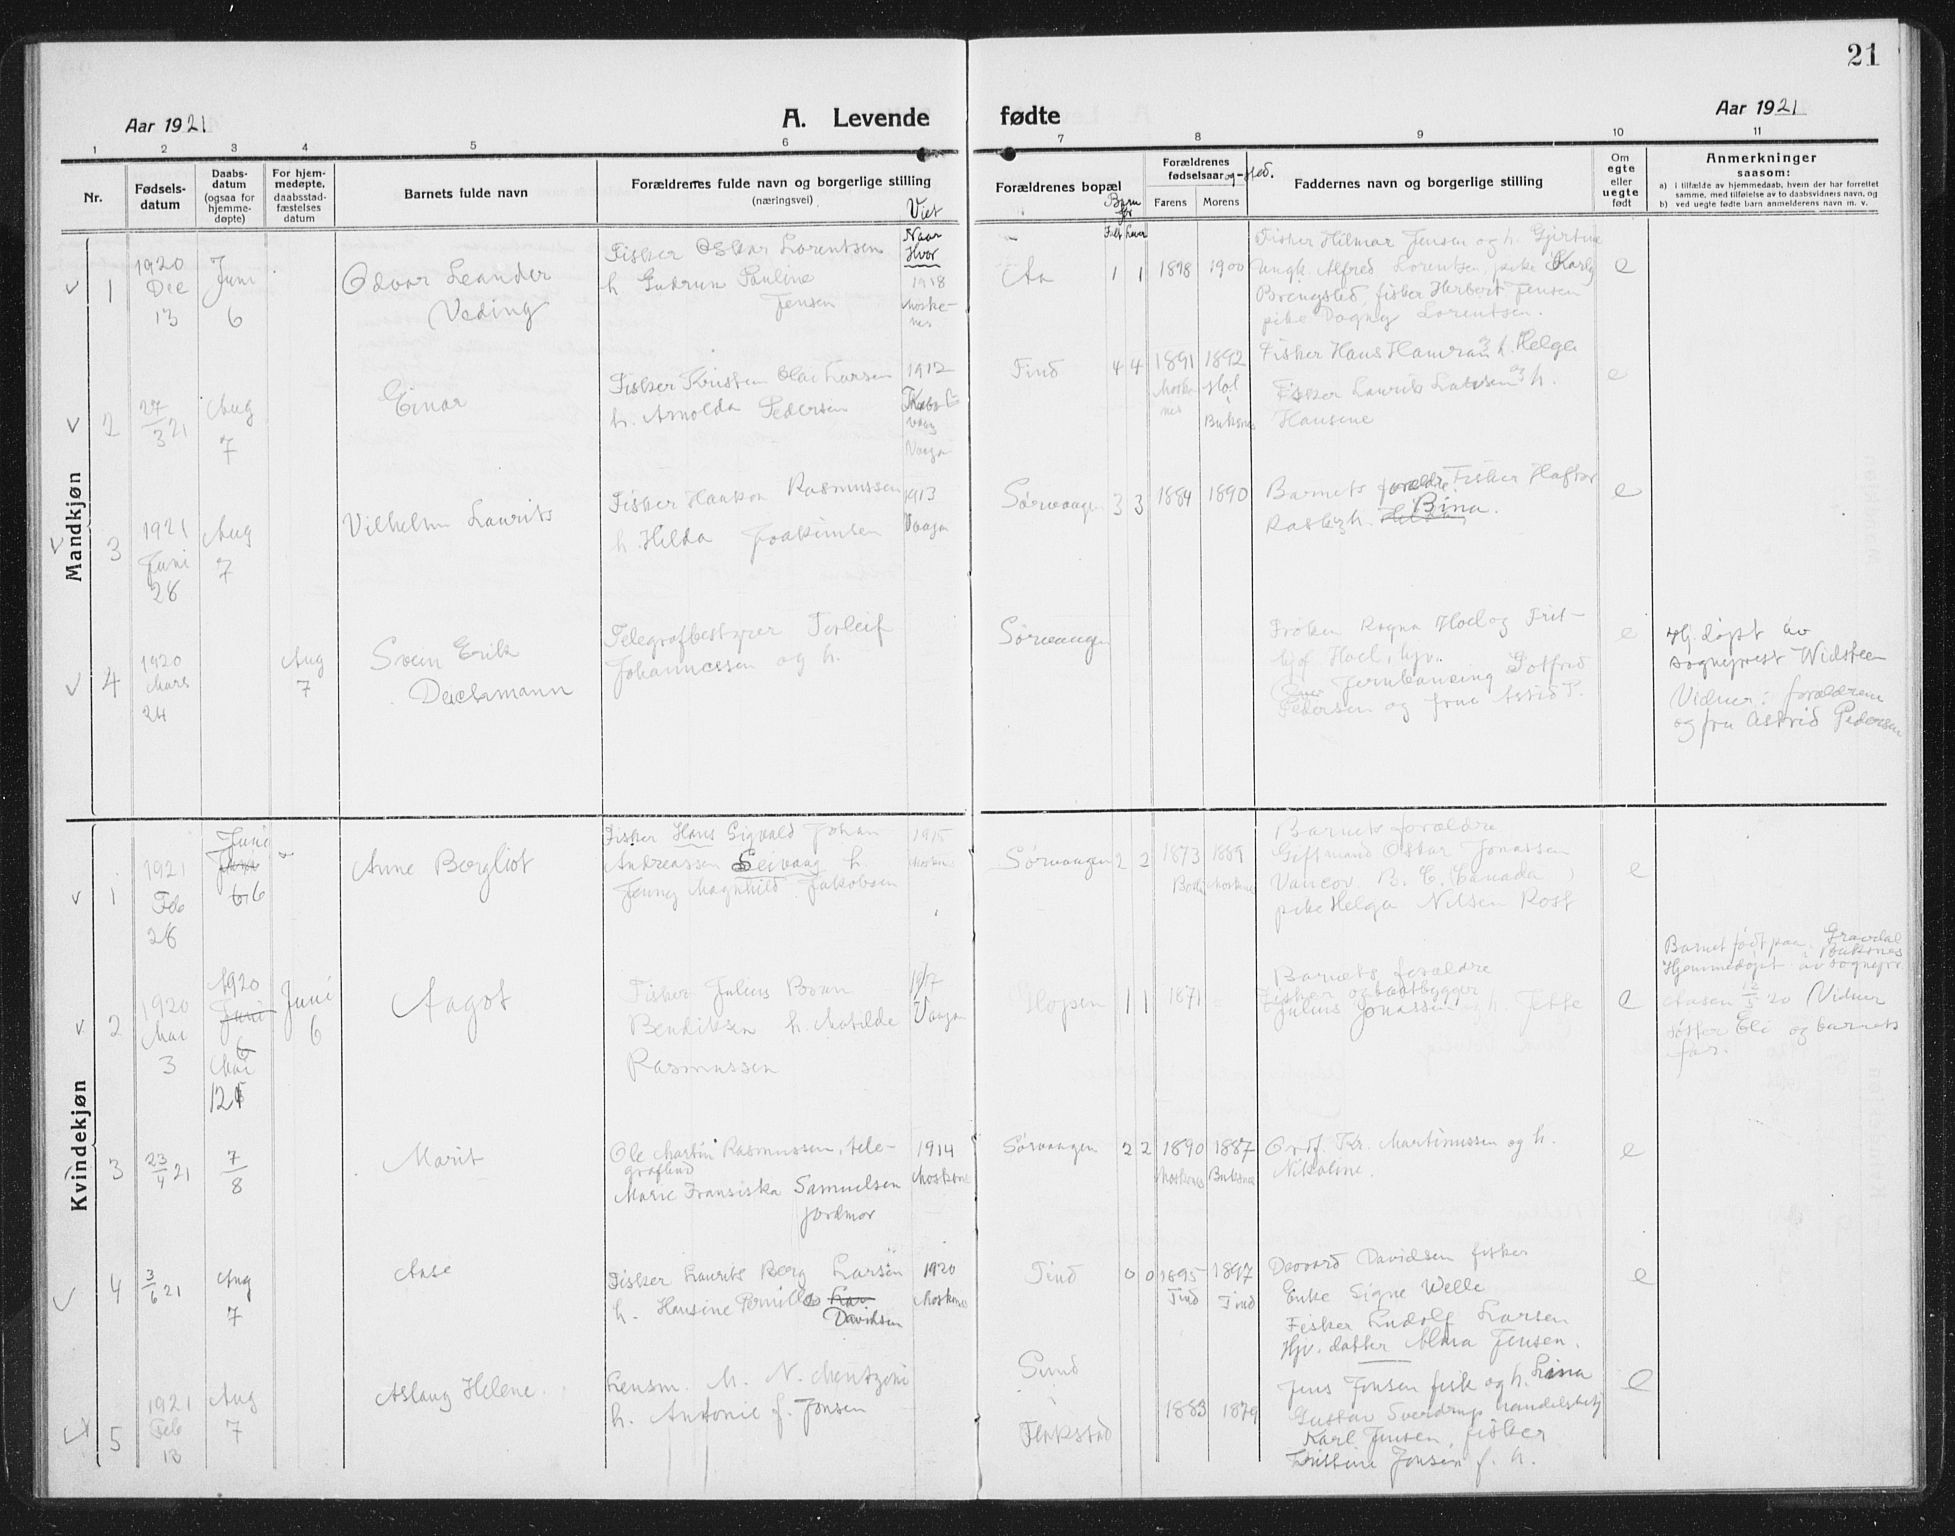 21
Aar 1921
A. Levende fødte
Aar 1921
1 2 3 4 5 6 7 8 9 10 11
Nr.
Fødsels-
datum
Daabs-
datum
(ogsaa for
hjemme-
døpte)
For hjem-
medøpte,
daabsstad-
fæstelses
datum
Barnets fulde navn
Forældrenes fulde navn og borgerlige stilling
(næringsvei)
Viet
Naar
Hvor
Forældrenes bopæl
Barn
før
Født Lever
Forældrenes
fødselsaar og -sted.
Farens Morens
Faddernes navn og borgerlige stilling
Om
egte
eller
uegte
født
Anmerkninger
saasom:
a) i tilfælde av hjemmedaab, hvem der har forrettet
samme, med tilføielse av to daabsvidners navn, og
b) ved uegte fødte barn anmelderens navn m. v.
Mandkjøn
1
1920
Dec
13
Juni
6
Odvar Leander
Veding
Fisker Oskar Lorentsen
h. Gudrun Pauline
Jensen
1918
Moske-
nes
Aa
1 1
1898 1900
Fisker Hilmar Jensen og h. Gjertine
Ungk. Alfred Lorentsen, pike Karly
Brengsled, fisker Herbert Jensen
pike Dagny Lorentsen.
e
2
27
3 21
Aug
7
Einar
Fisker Kristen Olai Larsen
h. Arnolda Pedersen
1912
Kabel-
vaag
Vaagan
Tind
4 4
1891 1892
Moske-
nes
Hol
i
Buksnes
Fisker Hans Hamran og h. Helga
Fisker Laurits Larsen og h.
Hansine
e
3
1921
Juni
28
Aug
7
Vilhelm Laurits
Fisker Haakon Rasmussen
h. Hilda Joakimsen
1913
Vaagan
Sørvaagen
3 3
1884 1890
Barnets forældre Fisker Haftor
Rask og h. Bina.
e
4
1920
Mars
24
Aug
7
Svein Erik
Deichmann
Telegrafbestyrer Torleif
Johannessen og h.
Sørvaagen
Frøken Ragna Hoel og Frit-
hjof Hoel, hjv.
Jernbaneing Gotfrid
Pedersen og frue Astrid P.
e
Hj. døpt av
sogneprest Widsteen
Vidner: forældrene
og fru Astrid Pedersen
Kvindekjøn
1
1921
Feb
28
Juni
6
Anne Bergliot
Fisker Hans Sigvald Johan
Andreassen Seivaag h.
Jenny Magnhild Jakobsen
1915
Moskenes
Sørvaagen
2 2
1873 1889
Bodø Moskenes
Barnets forældre
Gift mand Oskar Jonassen
Vancov. B. C. Canada
pike Helga Nilsen Røst
e
2
1920
Mai
3
1920
Juni
6
Mai
12
Juni
6
Aagot
Fisker Julius Boan
Bendiksen h. Matilde
Rasmussen
1917
Vaagan
Hopen
1 1
1871
Barnets forældre
Fisker og baatbygger
Julius Jonassen og h. Jette
e
Barnet født paa Gravdal
Buksnes
Hjemmedøpt av sognepr.
Aasen 12/5 20 Vidner
søster Eli og barnets
far.
3
23
4 21
7
8
Marit
Ole Martin Rasmussen, tele-
grafbud
Marie Fransiska Samuelsen
jordmor
1914
Moskenes
Sørvaagen
2 2
1890 1887
Moskenes Buksnes
Ordf. Kr. Martinussen og h.
Nikoline.
e
4
3
6 21
Aug
7
Aase
Fisker Laurits Berg Larsen
h. Hansine Pernille
Davidsen
1920
Moskenes
Tind
0 0
1895 1897
Tind Tind
Davidsen fisker
Enke Signe Welle
Fisker Ludolf Larsen
Hjv. datter Alma Jensen.
e
5
1921
Feb
13
Aug
7
Aslaug Helene
Lensm. M. N. Mentzoni
h. Antonie f. Jensen
Sund
i
Flakstad
1883 1879
Jens Jensen fisk og h. Lina
Gustav Sverdrup handelsbetj
Karl Jensen, fisker
Kristine Jensen f. h.
e